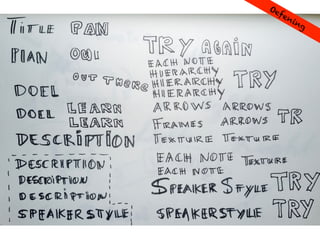 Oefening
TITLE PAN
PLAN
OUT THERE
DOEL LEARN
DOEL LEARN
DESCRIPTION
DESCRIPTION
DESCRIPTION
DESCRIPTION
SPEAKER STYLE
TRY AGAIN
EACH NOTE
HIERARCHY
HIERARCHY TRY
HIERARCHY
ARROWS ARROWS
FRAMES ARROWS TR
TEXTURE TEXTURE
EACH NOTE TEXTURE
EACH NOTE
SPEAKER STYLE TRY
SPEAKERSTYLE TRY